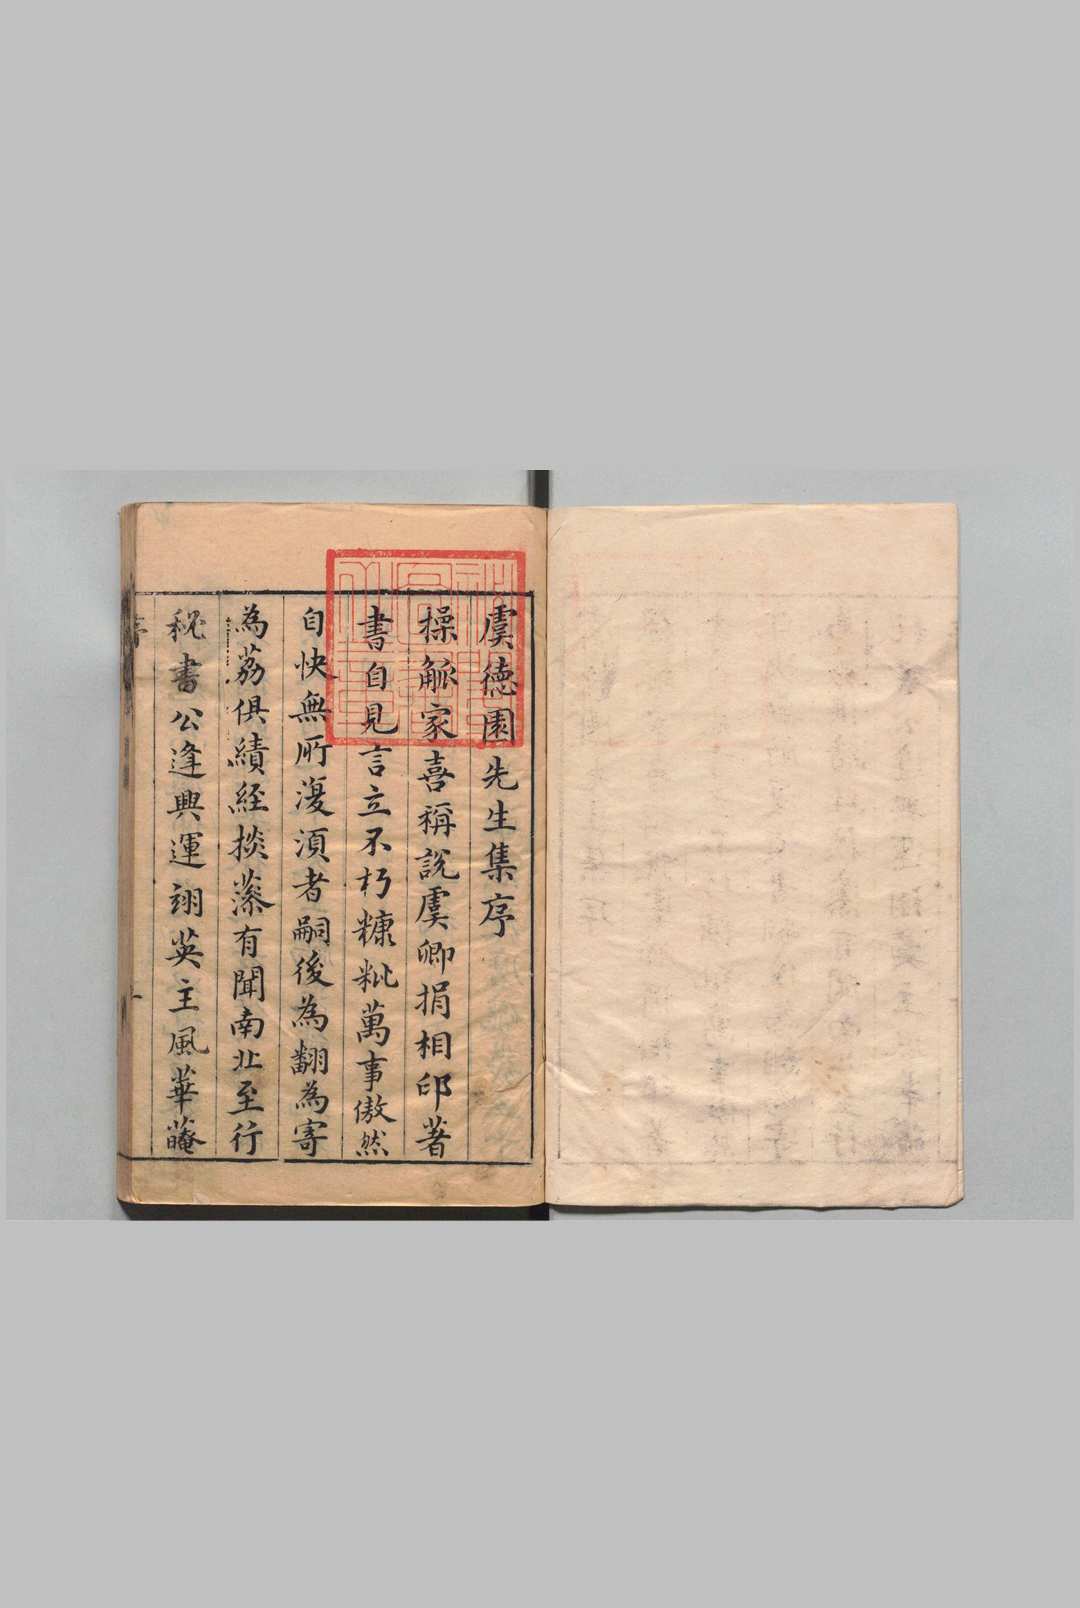 虞德園先生集序
操觚家喜稱說虞卿捐相印著
書自見言立不朽糠粃萬事傲然
自快無所復須者嗣後為翻為寄
為荔俱績経掞藻有聞南北至行
秘書公逢興運翊英主風華菴
序
一